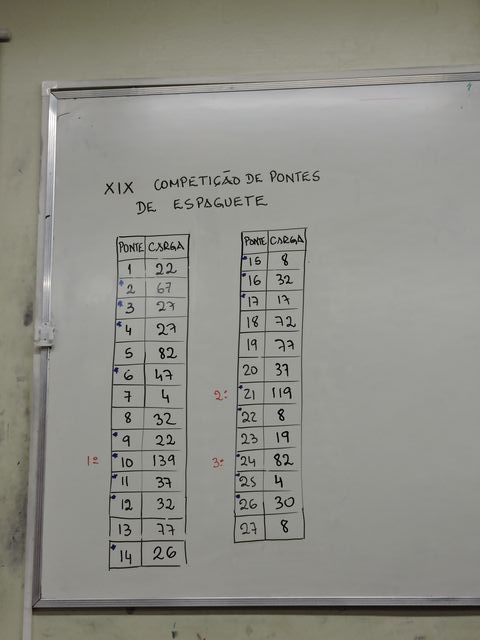 XIX COMPETIÇÃO DE PONTES
DE ESPAGUETE
PONTE CARGA
1 22
• 2 67
• 3 27
• 4 27
5 82
• 6 47
7 4
8 32
• 9 22
1º • 10 139
• 11 37
• 12 32
13 77
• 14 26
PONTE CARGA
• 15 8
• 16 32
• 17 17
18 72
19 77
20 37
2º • 21 119
• 22 8
23 19
3º • 24 82
• 25 4
• 26 30
27 8